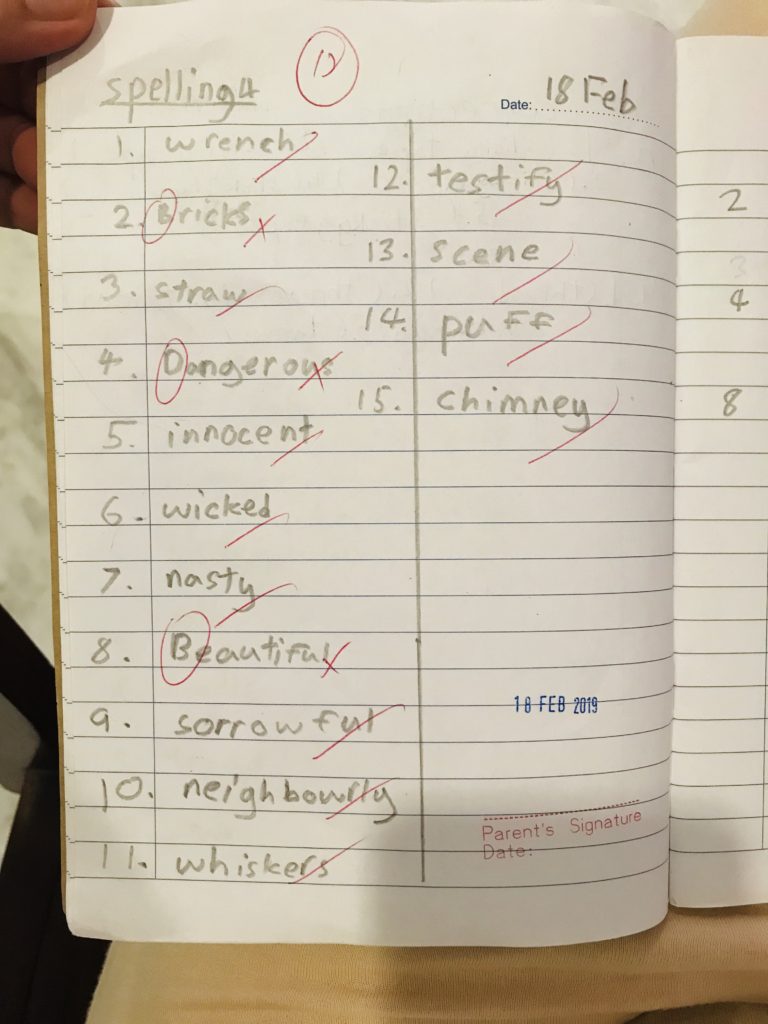 12
spelling 4
Date: 18 Feb
1. wrench
2. Bricks
3. straw
4. Dangerous
5. innocent
6. wicked
7. nasty
8. Beautiful
9. sorrowful
10. neighbourly
11. whiskers
12. testify
13. scene
14. puff
15. chimney
18 FEB 2019
Parent's Signature
Date:
2
3
4
8